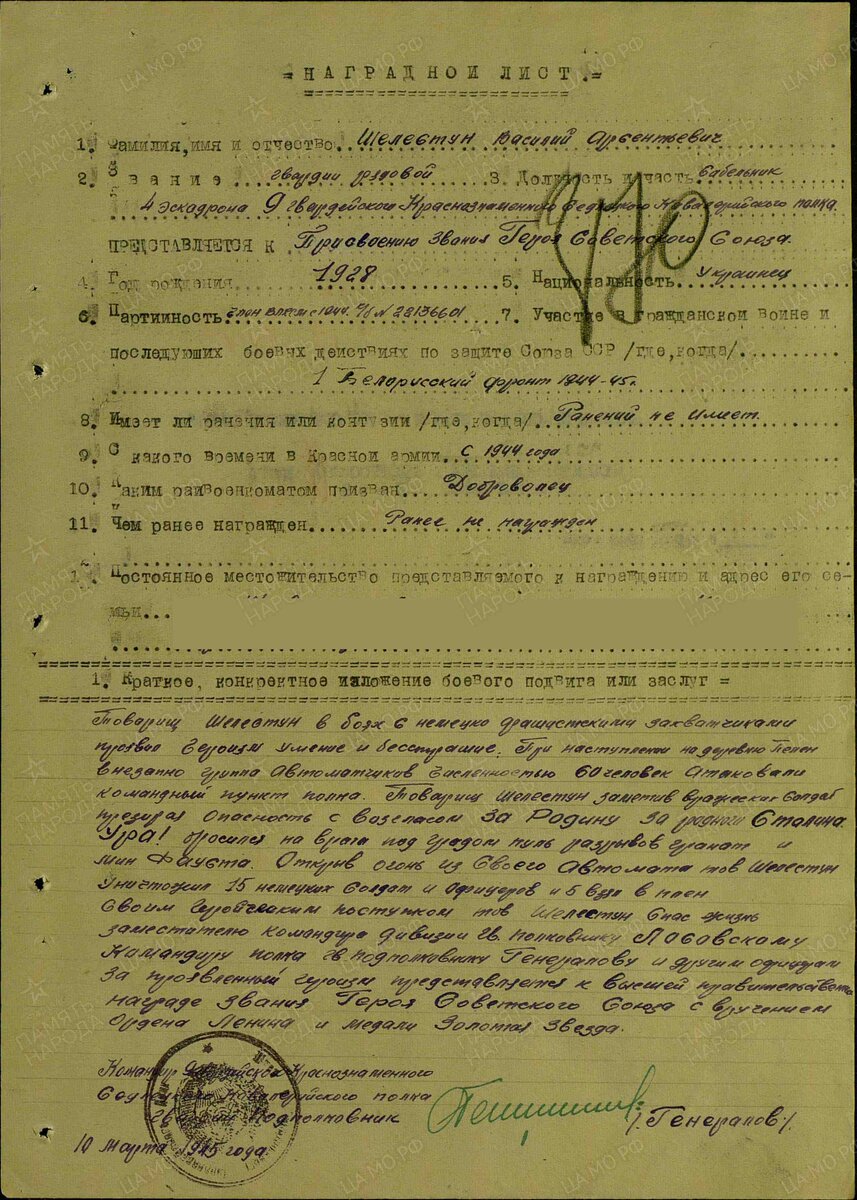 = НАГРАДНОЙ ЛИСТ. =
1. Фамилия, имя и отчество.. Шелестун Василий Арсентьевич
2. Звание.... гвардии рядовой 3. Должность и часть Сабельник
4 эскадрона 9 гвардейского Краснознаменного Седлецкого Кавалерийского полка
ПРЕДСТАВЛЯЕТСЯ К Присвоению Звания Героя Советского Союза.
4. Год рождения 1928 5. Национальность Украинец
6. Партийность. Член ВЛКСМ с 1944. Ч/б № 28136601 7. Участие в гражданской войне и
последующих боевых действиях по защите Союза ССР /где, когда/..
1 Белорусский фронт 1944-45г.
8. Имеет ли ранения или контузии /где, когда/.. Ранений не имеет
9. С какого времени в Красной армии.. С 1944 года
10. Каким райвоенкоматом призван.... Доброволец
11. Чем ранее награжден....... Ранее не награжден
1. Постоянное местожительство представляемого к награждению и адрес его се-
мьи...
1. Краткое, конкретное изложение боевого подвига или заслуг =
Товарищ Шелестун в боях с немецко фрашистскими захватчиками
проявил Героизм умение и бесстрашие. При наступлении на деревню
внезапно группа Автоматчиков Численностью 60 человек Атаковали
командный пункт полка. Товарищ Шелестун заметив вражеских Солдат
презирая опасность с возгласом За Родину За родного Сталина
Ура! бросился на врага под градом пуль разрывов гранат и
мин Фауста. Открыв огонь из Своего Автомата тов Шелестун
уничтожил 15 немецких Солдат и офицеров и 5 взял в плен
Своим Геройческим поступком тов Шелестун Спас жизнь
заместителю командира дивизии гв. полковнику Лабавскому
Командиру полка гв. подполковнику Генералову и другим офицерам
За проявленный героизм представляется к высшей правительствен.
награде Звания Героя Советского Союза с вручением
Ордена Ленина и медали Золотая Звезда.
Командир 9 гвардейского Краснознаменного
Седлецкого Кавалерийского полка
гвардии Подполковник /Генералов/.
10 марта 1945 года